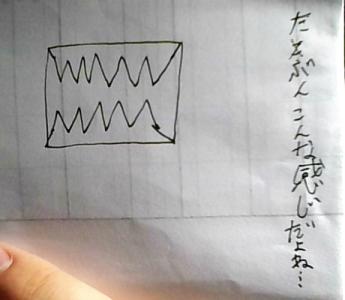 たぶんこんな感じだよね…